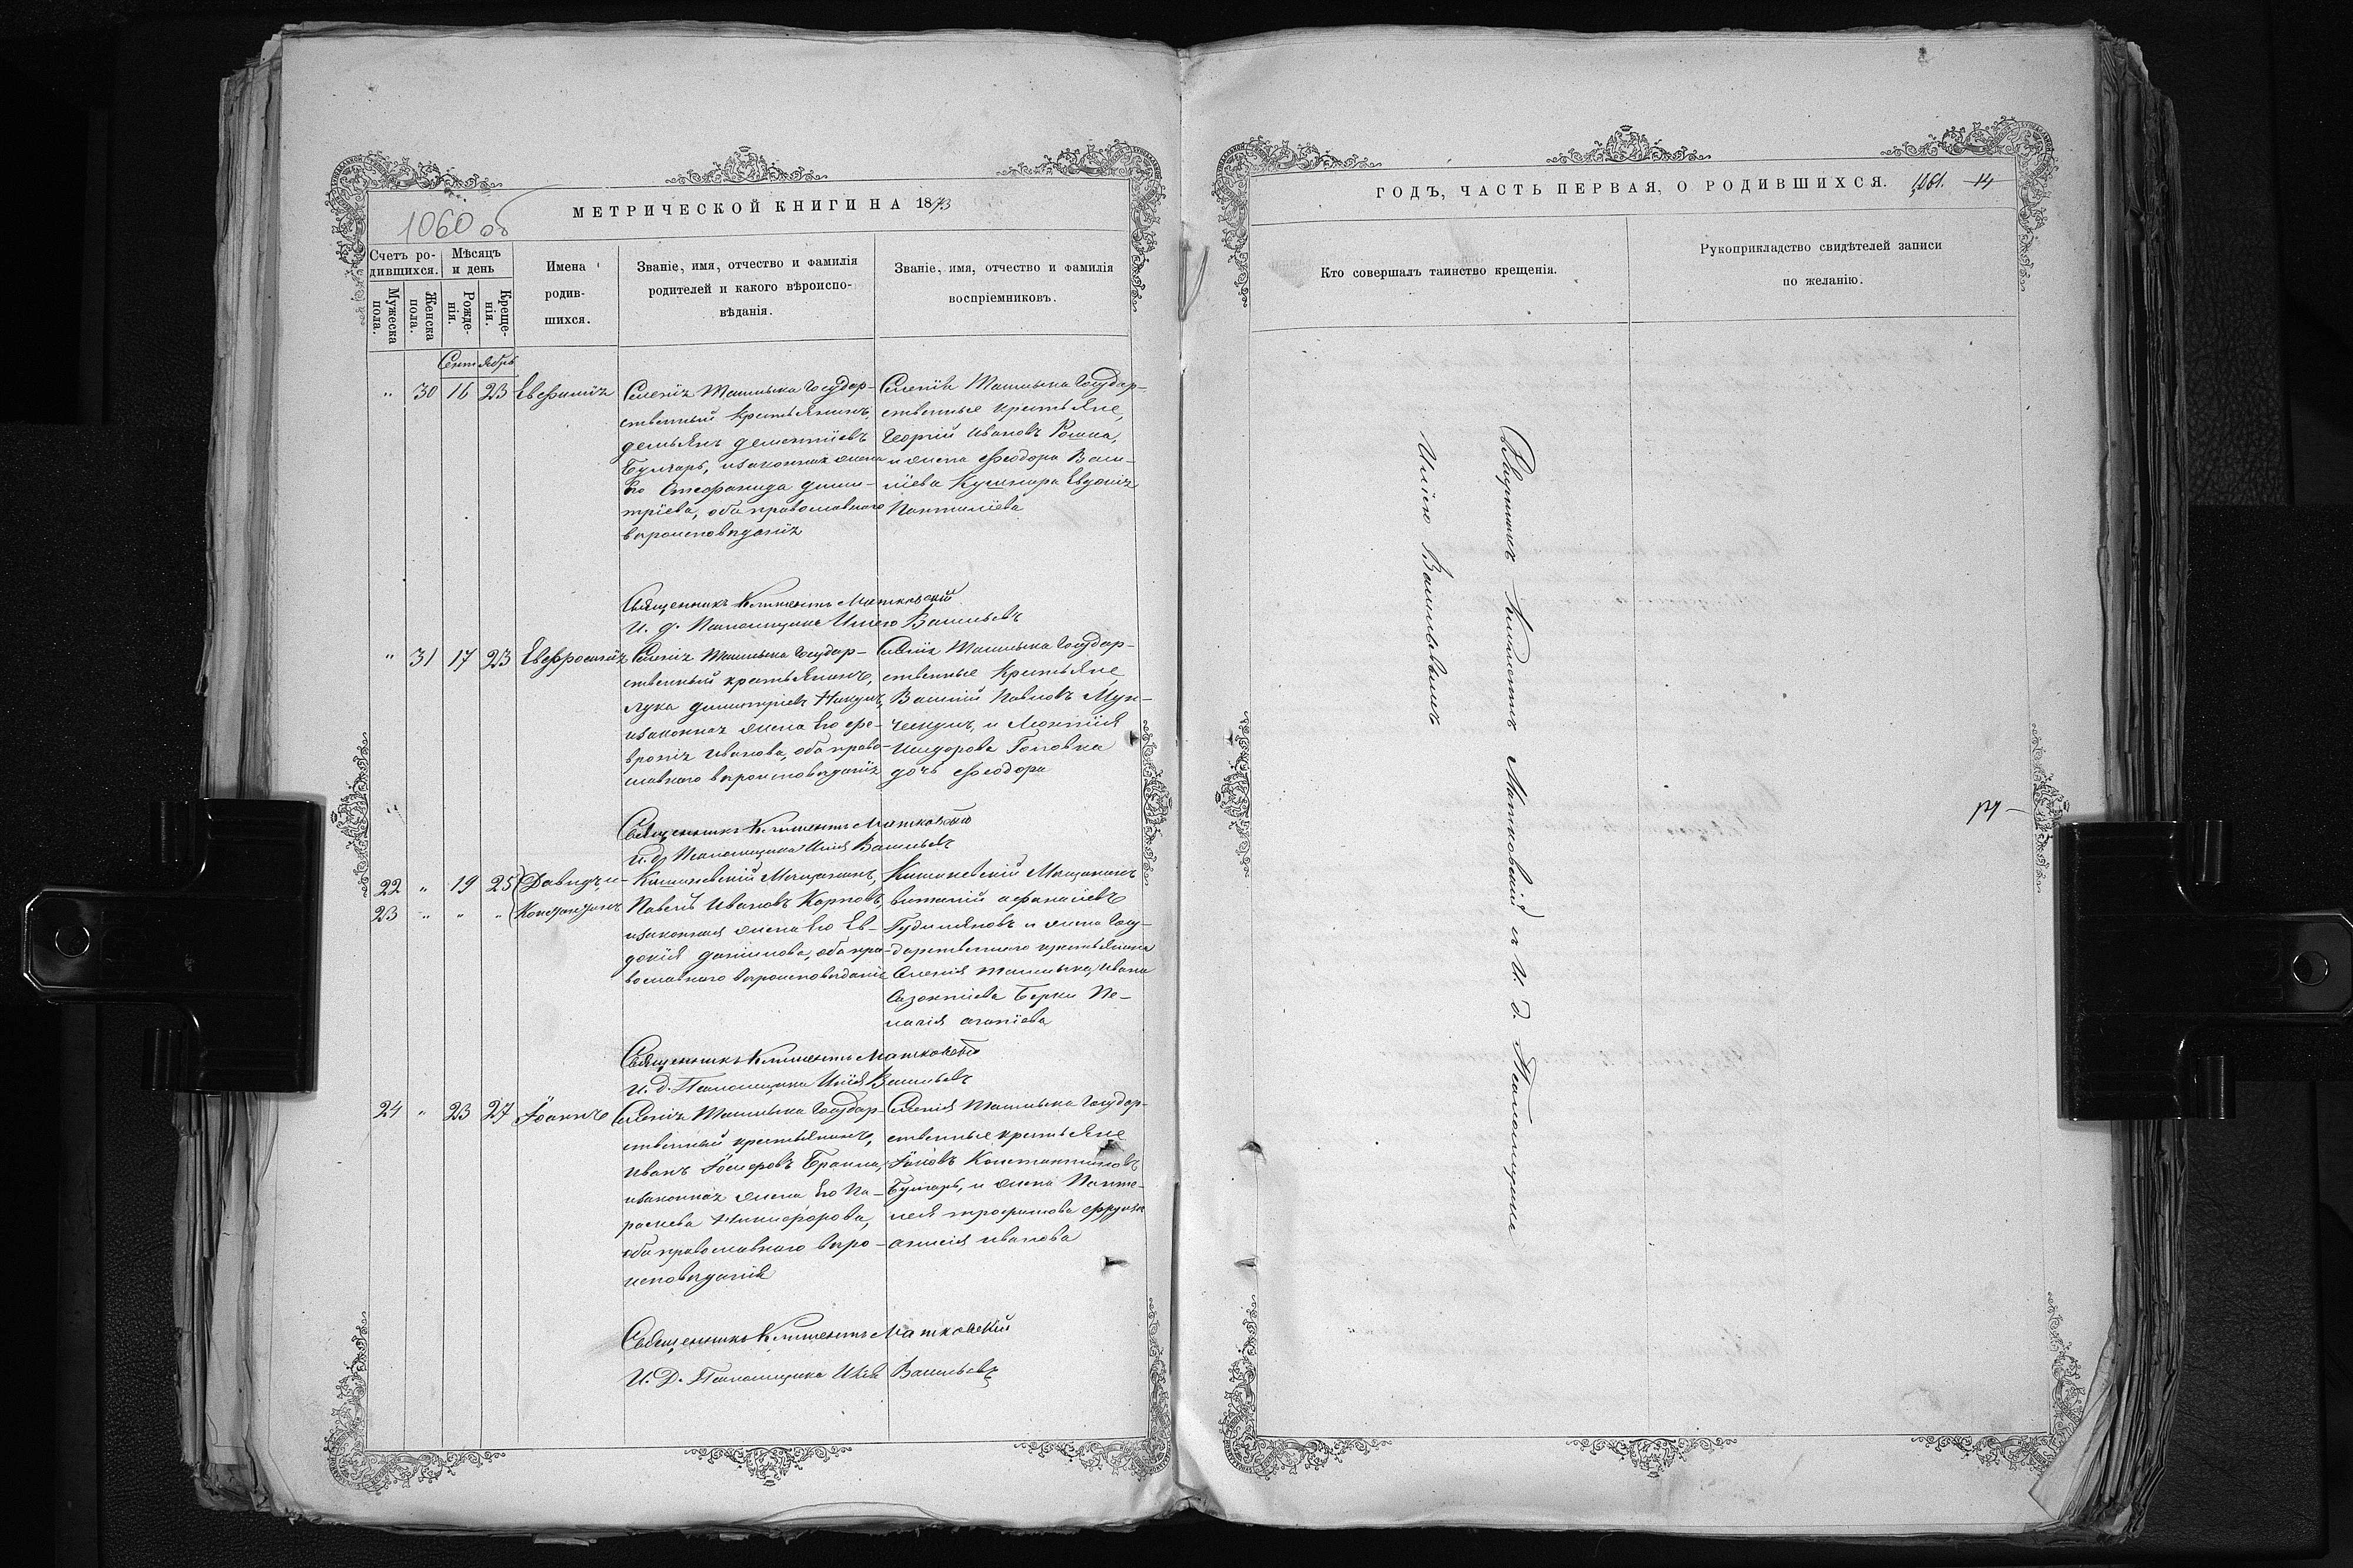 1060 об
МЕТРИЧЕСКОЙ КНИГИ НА 1873
Счетъ ро-
дившихся.
Мѣсяцъ
и день
Мужеска
пола.
Женска
пола.
Рожде-
нія.
Креще-
нія.
Имена
родив-
шихся.
Званіе, имя, отчество и фамилія
родителей и какого вѣроиспо-
вѣданія.
Званіе, имя, отчество и фамилія
воспріемниковъ.
Сентябрь
" 30 16 23 Евфимія
Селенія Государ-
ственный крестьянинъ,
демьянъ дементіевъ
Булгаръ, изаконная жена
Его Стефанида дими-
тріева, оба православного
вѣроисповѣданія
Селенія Государ-
ственные крестьяне,
Георгій Ивановъ Рошка,
и жена Феодора Васи-
ліева Кушнира Евдокія
Пантиліева
Священникъ Климентъ Матковскій
И. д. Псаломщика Илія Васильевъ
" 31 17 23 Евфросинія
Селенія Государ-
ственный крестьянинъ,
Лука димитріевъ
изаконная жена Его Фе-
вронія Иванова, оба право-
славного вѣроисповѣданія
Селенія Государ-
ственные Крестьяне
Василій Павловъ Мун-
и Леонтія
Исидорова Головка
дочь Феодора
Священникъ Климентъ Матковскій
И. д. Псаломщика Илія Васильевъ
22 " 19 25 Давидъ, и
23 " " " Константинъ
Кишиневскій Мѣщанинъ,
Павелъ Ивановъ Карповъ,
изаконная жена Его Ев-
докія данилова, оба пра-
вославного вѣроисповѣданія
Кишиневскій Мѣщанинъ
виталій афанасіевъ
и жена Госу-
дарственного крестьянина
Селенія Ивана
Берки Пе-
лагія агапіева
Священникъ Климентъ Матковскій
И. д. Псаломщика Илія Васильевъ
24 " 23 27 Іоаннъ
Селенія Государ-
ственный крестьянинъ,
Иванъ Іосифовъ Браила,
изаконная жена Его Па-
раскева Никифорова,
оба православного вѣро-
исповѣданія
Селенія Государ-
ственные крестьяне
Іаковъ Константиновъ
Булгаръ, и жена Панте-
лея трофимова
анисія иванова
Священникъ Климентъ Матковскій
И. Д. Псаломщика Илія Васильевъ
ГОДЪ, ЧАСТЬ ПЕРВАЯ, О РОДИВШИХСЯ. 1061. 14
Кто совершалъ таинство крещенія.
Рукоприкладство свидѣтелей записи
по желанію.
Священникъ Климентъ Матковскій съ И. д. Псаломщика
Иліею Васильевымъ